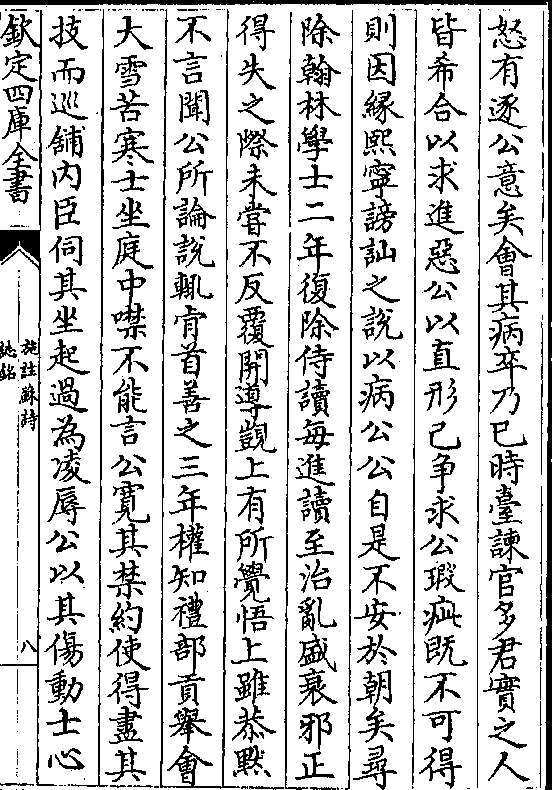 怒有逐公意矣會其病卒乃已時臺諫官多君實之人
皆希合以求進惡公以直形己争求公瑕疵既不可得
則因縁熙寧謗訕之說以病公公自是不安於朝矣尋
除翰林學士二年復除侍讀每進讀至治亂盛衰邪正
得失之際未嘗不反覆開導覬上有所覺悟上雖恭黙
不言聞公所論說輒肯首善之三年權知禮部貢舉會
大雪苦寒士坐庭中噤不能言公寛其禁約使得盡其
技而巡鋪内臣伺其坐起過為凌辱公以其傷動士心
欽定四庫全書
施註蘇詩
誌銘
八